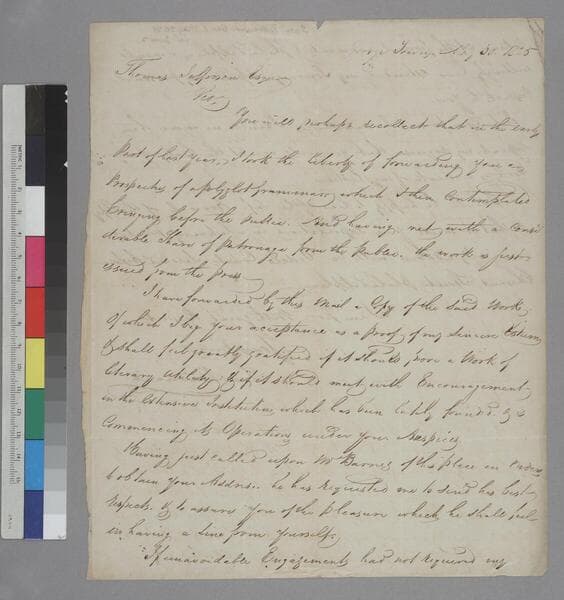 May 30. 1825
Thomas Jefferson Esqr
Sir,
You will perhaps recollect that in the early
part of last year, I took the liberty of forwarding you a
Prospectus of a polyglot grammar, which I then Contemplated
bringing before the Public. And having met with a consi
derable Share of Patronage from the Public. the work is just
issued from the press
I have forwarded by this Mail a Copy of the said Work,
Of which I beg your acceptance as a proof of my sincere Esteem
& shall feel greatly gratified if it should prove a Work of
literary utility & if it should meet with Encouragement
in the Extensive Institution, which has been lately founded & is
Commencing its Operations under your Auspices
Having just called upon Mr Barnes of this place in order
to obtain your Address. he has requested me to send his best
respects. & to assure you of the pleasure which he shall feel
in having a line from yourself.
If unavoidable Engagements had not required my